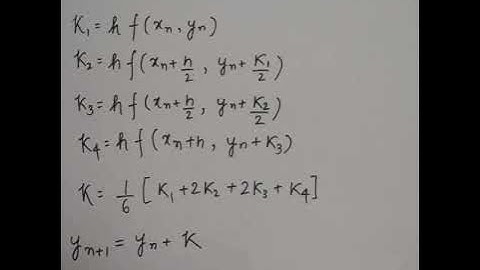 K₁ = h f(xₙ, yₙ)
K₂ = h f(xₙ + h/2, yₙ + K₁/2)
K₃ = h f(xₙ + h/2, yₙ + K₂/2)
K₄ = h f(xₙ + h, yₙ + K₃)
K = 1/6 [K₁ + 2K₂ + 2K₃ + K₄]
yₙ₊₁ = yₙ + K